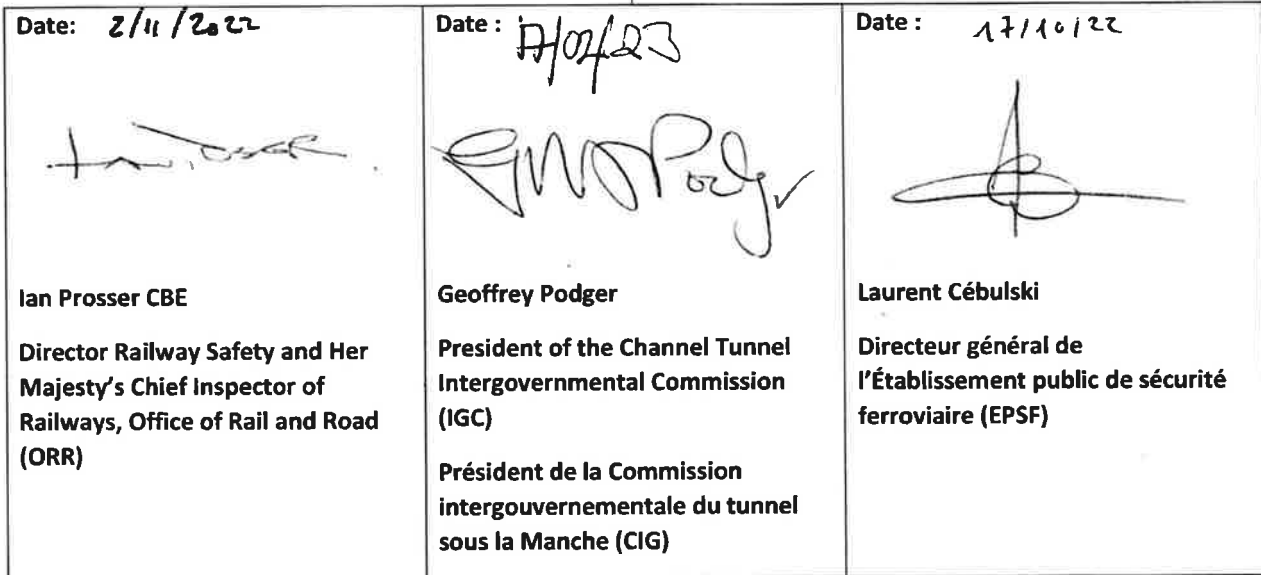 Date: 2/11/2022
Ian Prosser CBE
Director Railway Safety and Her
Majesty's Chief Inspector of
Railways, Office of Rail and Road
(ORR)
Date : 17/02/23
Geoffrey Podger
President of the Channel Tunnel
Intergovernmental Commission
(IGC)
Président de la Commission
intergouvernementale du tunnel
sous la Manche (CIG)
Date : 17/10/22
Laurent Cébulski
Directeur général de
l'Établissement public de sécurité
ferroviaire (EPSF)